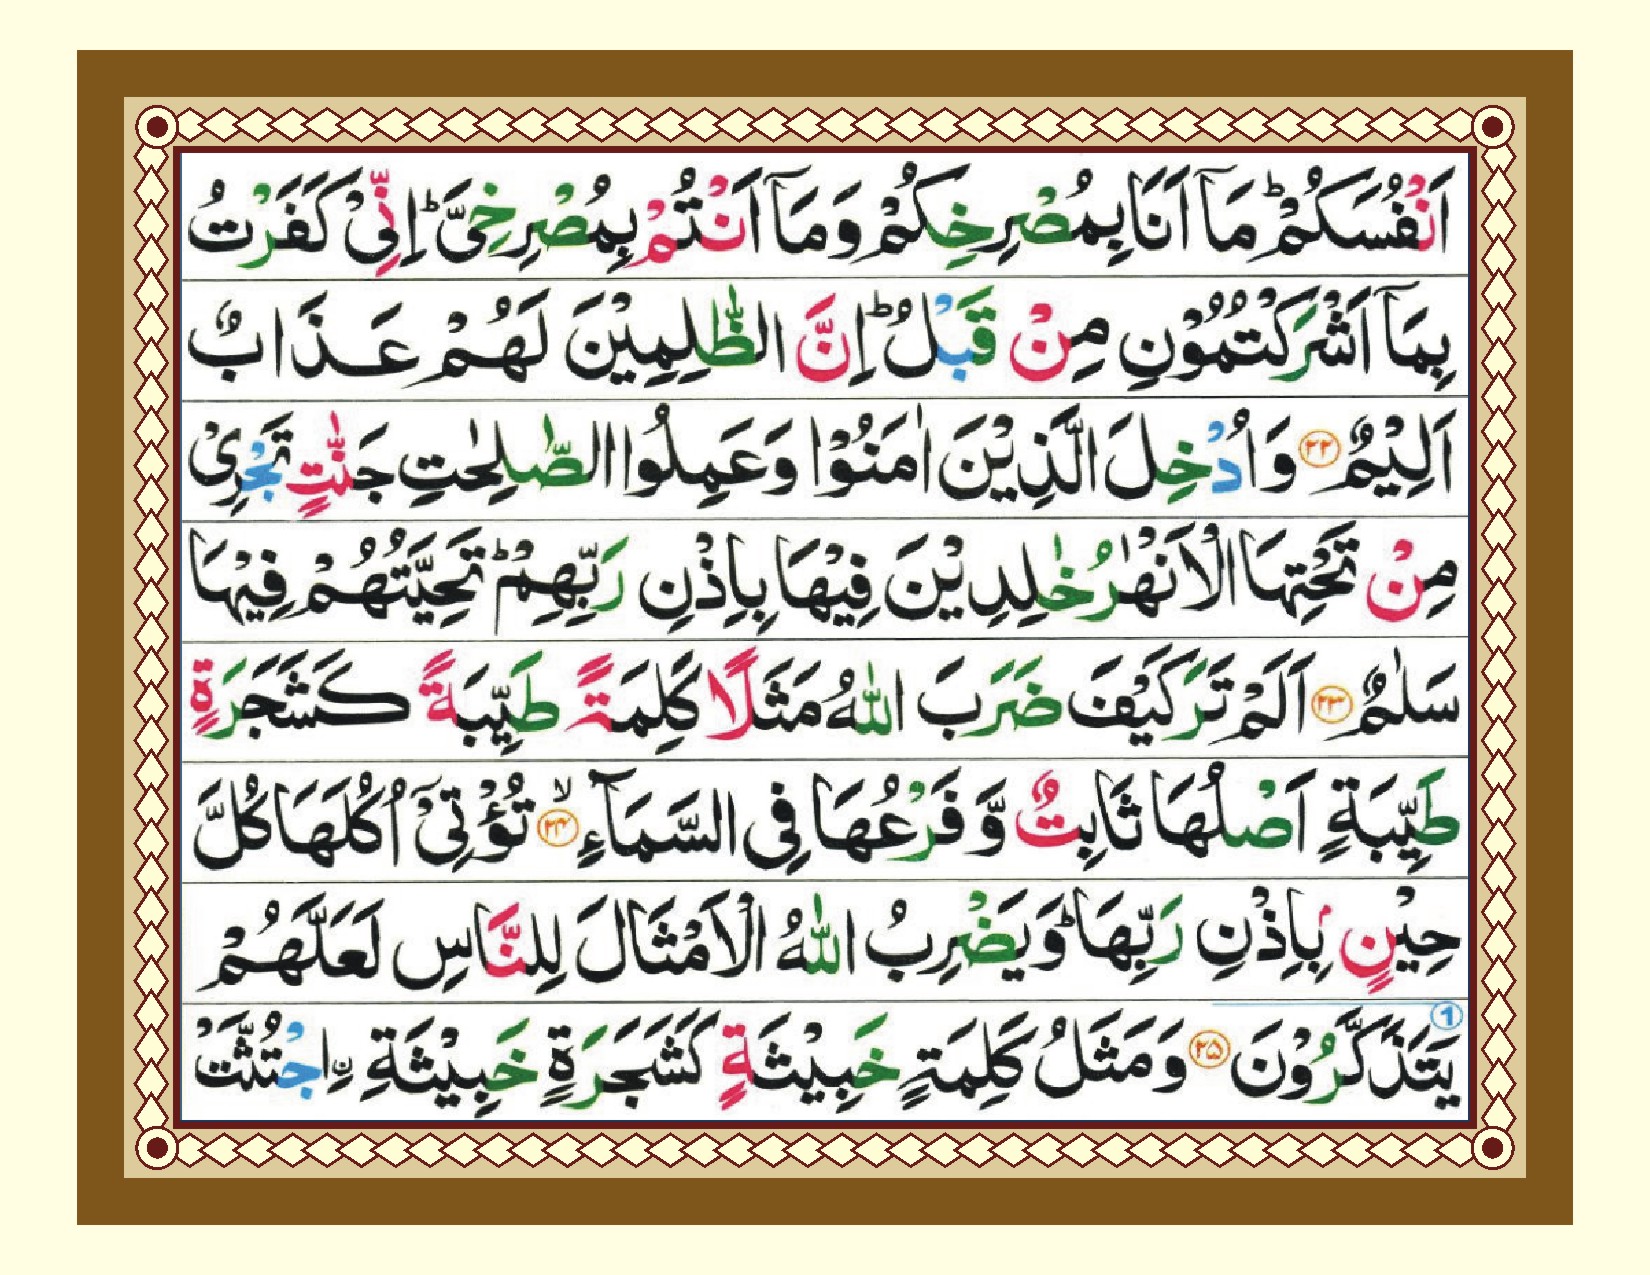 اَنْفُسَكُمْ ؕ مَاۤ اَنَا بِمُصْرِخِكُمْ وَمَاۤ اَنْتُمْ بِمُصْرِخِیَّ ؕ اِنِّیْ كَفَرْتُ
بِمَاۤ اَشْرَكْتُمُوْنِ مِنْ قَبْلُ ؕ اِنَّ الظّٰلِمِیْنَ لَهُمْ عَذَابٌ
اَلِیْمٌ ۲۲ وَاُدْخِلَ الَّذِیْنَ اٰمَنُوْا وَعَمِلُوا الصّٰلِحٰتِ جَنّٰتٍ تَجْرِیْ
مِنْ تَحْتِهَا الْاَنْهٰرُ خٰلِدِیْنَ فِیْهَا بِاِذْنِ رَبِّهِمْ ؕ تَحِیَّتُهُمْ فِیْهَا
سَلٰمٌ ۲۳ اَلَمْ تَرَ كَیْفَ ضَرَبَ اللّٰهُ مَثَلًا كَلِمَةً طَیِّبَةً كَشَجَرَةٍ
طَیِّبَةٍ اَصْلُهَا ثَابِتٌ وَّ فَرْعُهَا فِی السَّمَآءِ ۙ ۲۴ تُؤْتِیْۤ اُكُلَهَا كُلَّ
حِیْنٍۭ بِاِذْنِ رَبِّهَا ؕ وَیَضْرِبُ اللّٰهُ الْاَمْثَالَ لِلنَّاسِ لَعَلَّهُمْ
یَتَذَكَّرُوْنَ ۲۵ وَمَثَلُ كَلِمَةٍ خَبِیْثَةٍ كَشَجَرَةٍ خَبِیْثَةِ ِ۟نِ اجْتُثَّتْ
1